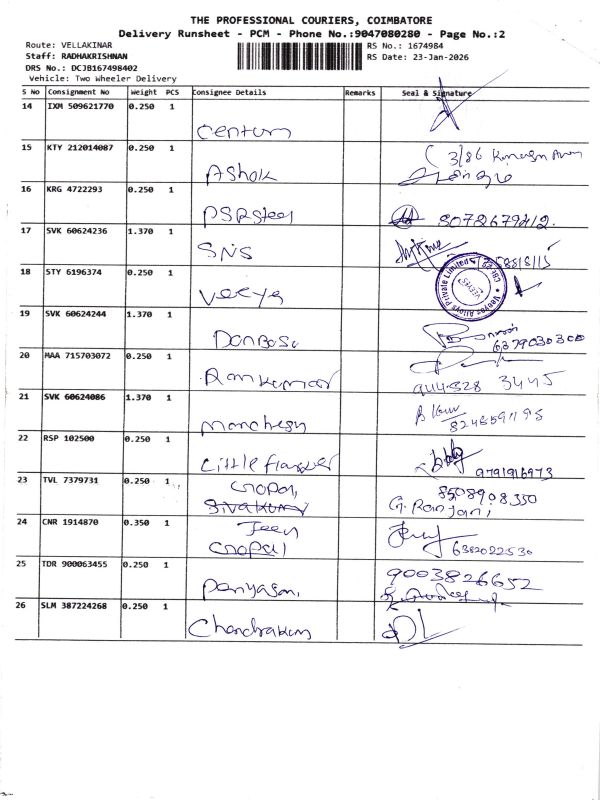 THE PROFESSIONAL COURIERS, COIMBATORE
Delivery Runsheet - PCM - Phone No.:9047080280 - Page No.:2
Route: VELLAKINAR
RS No.: 1674984
Staff: RADHAKRISHNAN
RS Date: 23-Jan-2026
DRS No.: DCJB167498402
Vehicle: Two Wheeler Delivery
S No Consignment No Weight PCS Consignee Details Remarks Seal & Signature
14 IXM 509621770 0.250 1
Centum
15 KTY 212014087 0.250 1
3/86
Ashok
16 KRG 4722293 0.250 1
PSRSteel 8072679412.
17 SVK 60624236 1.370 1
SNS
18 STY 6196374 0.250 1
Veeyes Alloys Private Limited CBE-22
Veeya
19 SVK 60624244 1.370 1
DonBosu 6379030300
20 MAA 715703072 0.250 1
Ramkumar 944328 3445
21 SVK 60624086 1.370 1
Manchesy
22 RSP 102500 0.250 1
Little flower 9791916973
23 TVL 7379731 0.250 1
Gopal, 8508908350
Sivakumr G. Ranjani,
24 CNR 1914870 0.350 1
Jeen
Gopal 6382022530
25 TDR 900063455 0.250 1
9003826652
Periyasam,
26 SLM 387224268 0.250 1
Chandrakum